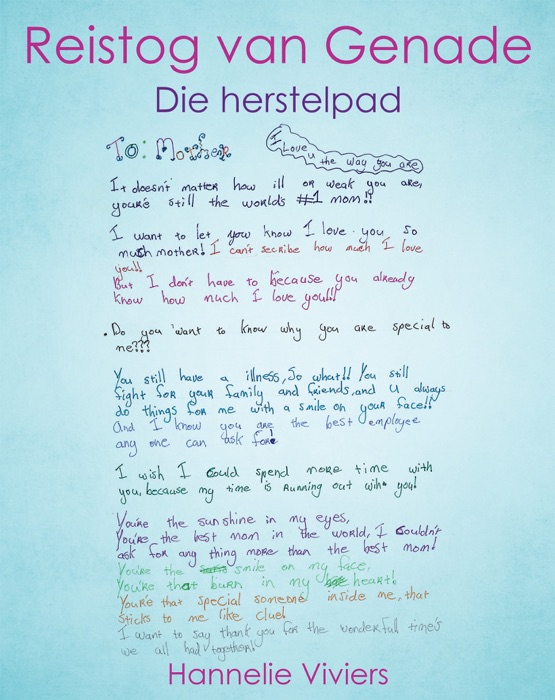 Reistog van Genade
Die herstelpad
To: Mother
I Love u the way you are
It doesn't matter how ill or weak you are,
you're still the worlds #1 mom!!
I want to let you know I love you so
much mother! I can't scribe how much I love
you!!
But I don't have to because you already
know how much I love you!!!
• Do you want to know why you are special to
me???
You still have a illness, So what!! You still
fight for your family and friends, and u always
do things for me with a smile on your face!!
And I know you are the best employee
any one can ask for!
I wish I could spend more time with
you, because my time is running out wiht you!
You're the sunshine in my eyes,
You're the best mom in the world, I couldn't
ask for any thing more than the best mom!
You're the smile on my face,
You're that burn in my heart!
You're that special someone inside me, that
sticks to me like clue!
I want to say thank you for the wonderfull time's
we all had together!
Hannelie Viviers